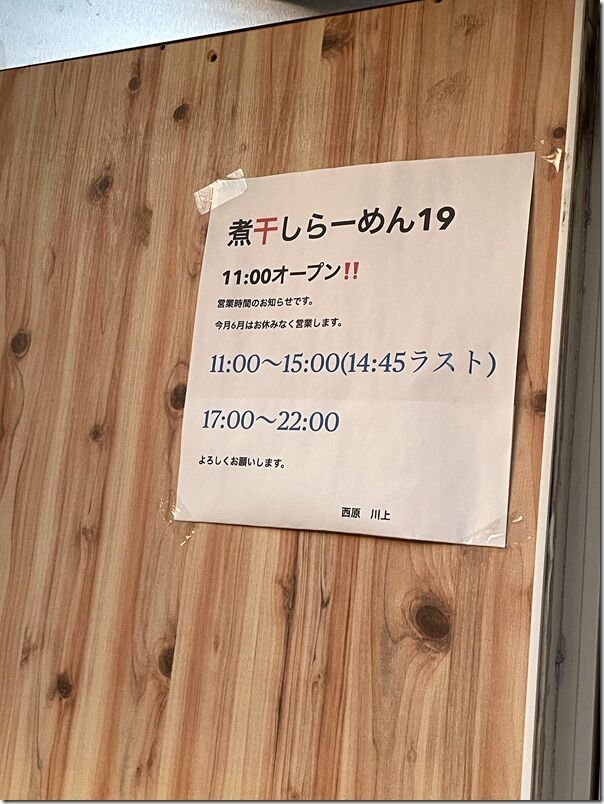 煮干しらーめん19
11:00オープン‼
営業時間のお知らせです。
今月6月はお休みなく営業します。
11:00〜15:00(14:45ラスト)
17:00〜22:00
よろしくお願いします。
西原　川上